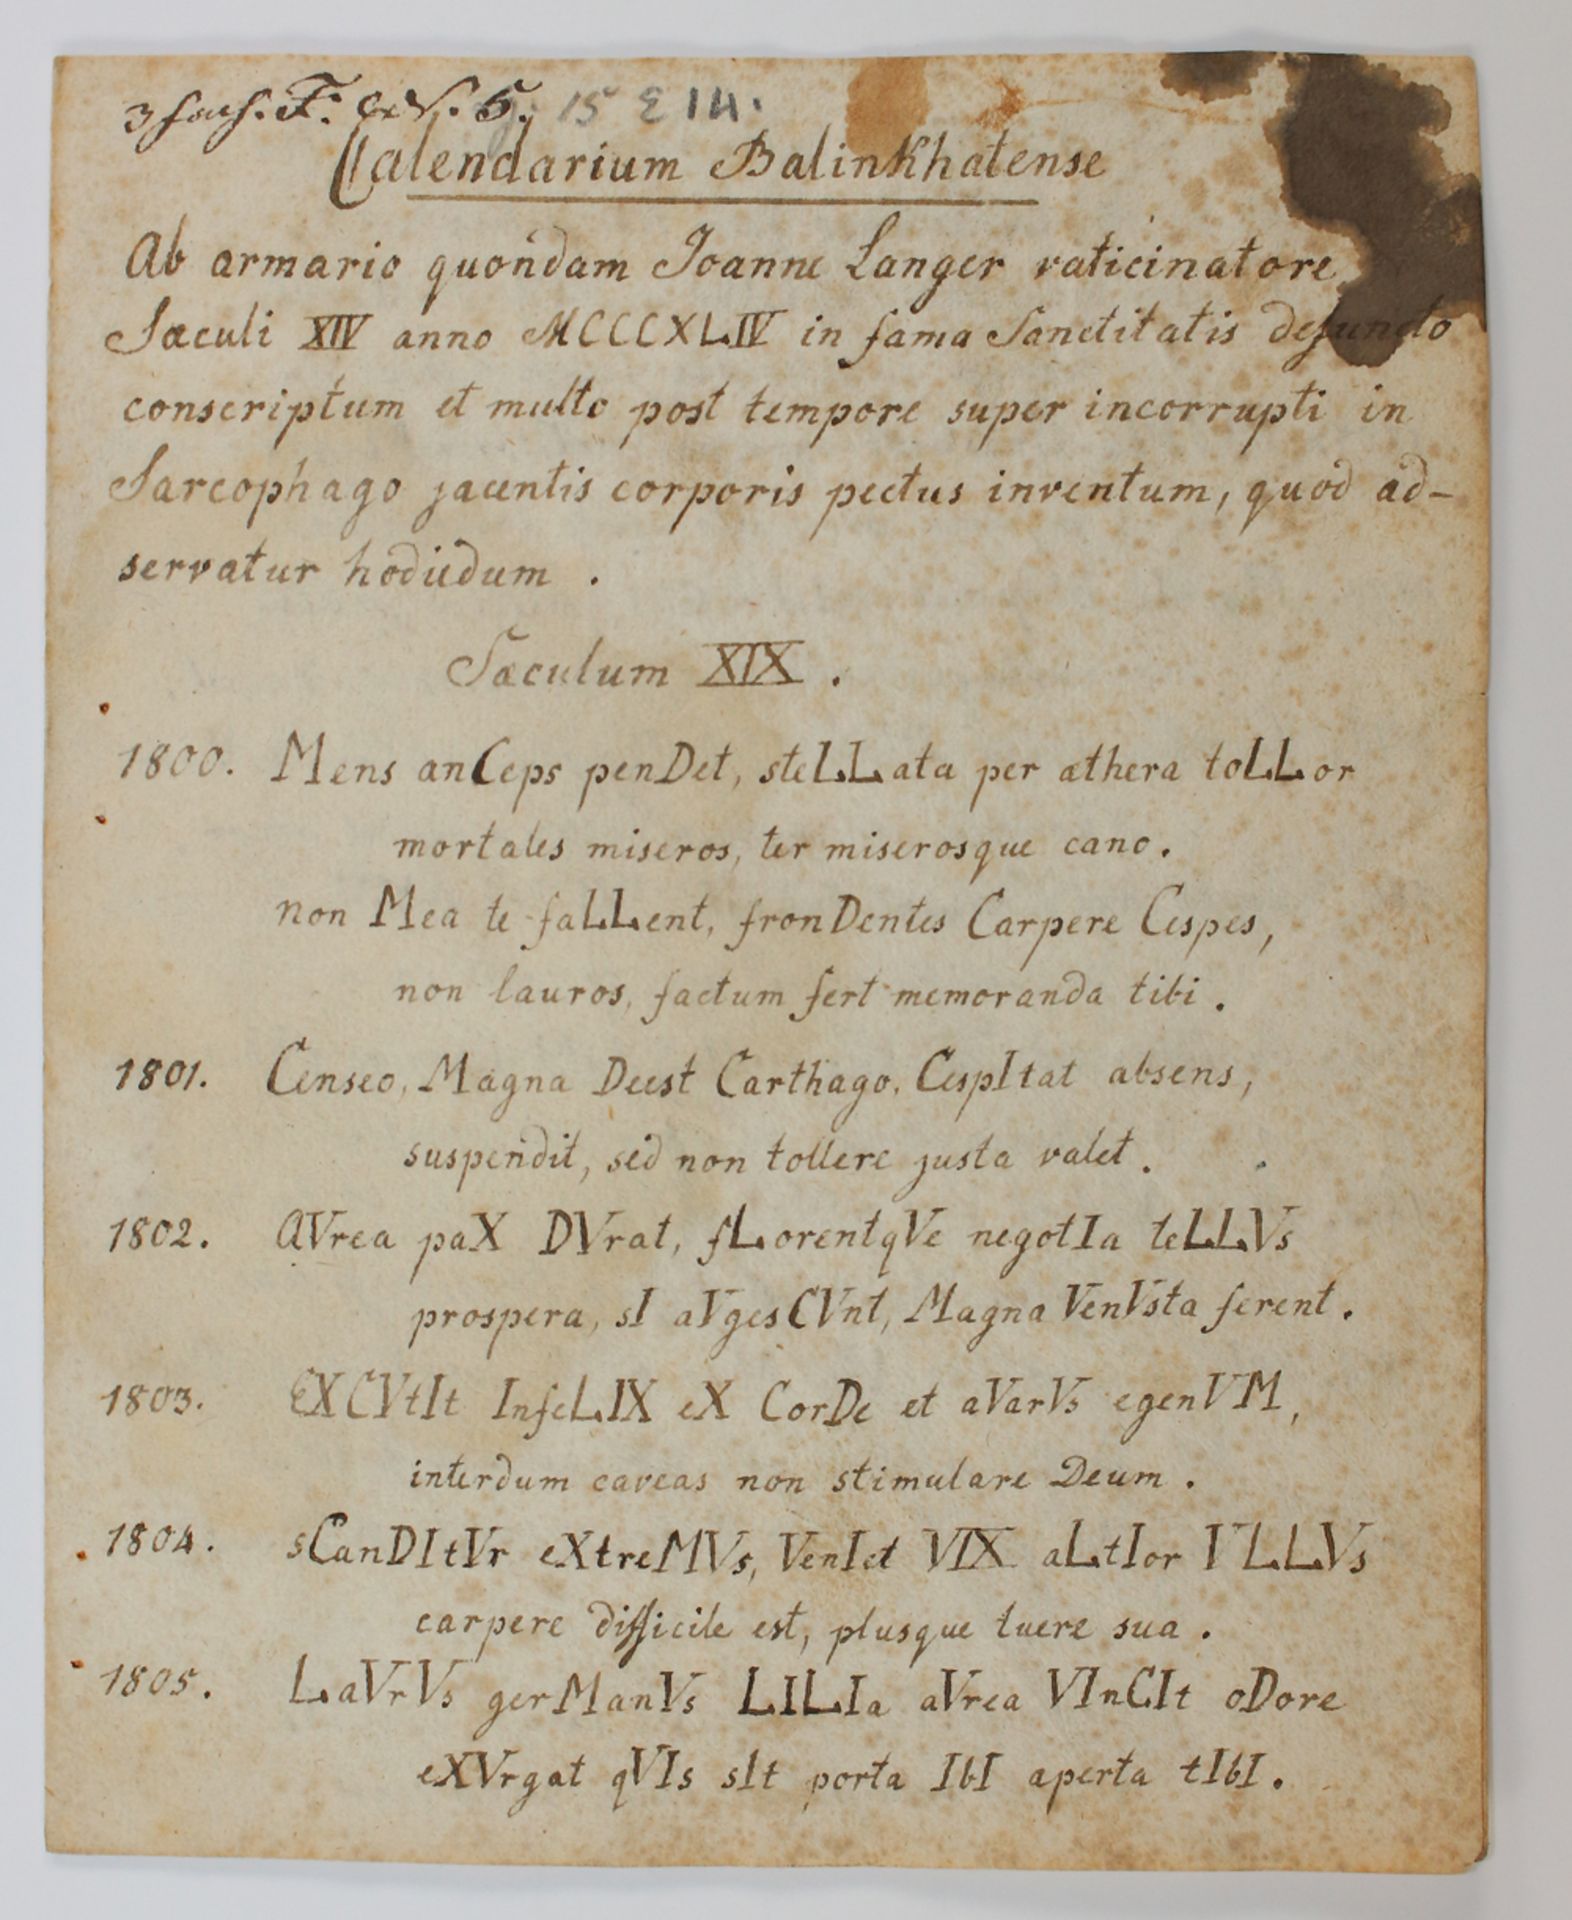 15 E 14.
Calendarium Balinkhatense
Ab armario quondam Joanne Langer vaticinatore
Sæculi XIV anno MCCCXLIV in fama Sanctitatis defuncto
conscriptum et multo post tempore super incorrupti in
Sarcophago jacentis corporis pectus inventum, quod ad-
servatur hodiedum .
Sæculum XIX .
1800. Mens anCeps penDet, steLLata per æthera toLLor
mortales miseros, ter miserosque cano.
non Mea te faLLent, fronDentes Carpere Cespes,
non lauros, factum fert memoranda tibi .
1801. Censeo, Magna Deest Carthago, CespItat absens,
suspendit, sed non tollere justa valet .
1802. AVrea paX DVrat, fLorentqVe negotIa teLLVs
prospera, sI aVgesCVnt, Magna VenVsta ferent .
1803. EXCVtIt InfeLIX eX CorDe et aVarVs egenVM,
interdum caveas non stimulare Deum .
1804. sCanDItVr eXtreMVs, VenIet VIX aLtIor VLLVs
carpere difficile est, plusque tuere sua .
1805. LaVrVs gerManVs LILIa aVrea VInCIt oDore
eXVrgat qVIs sIt porta IbI aperta tIbI .